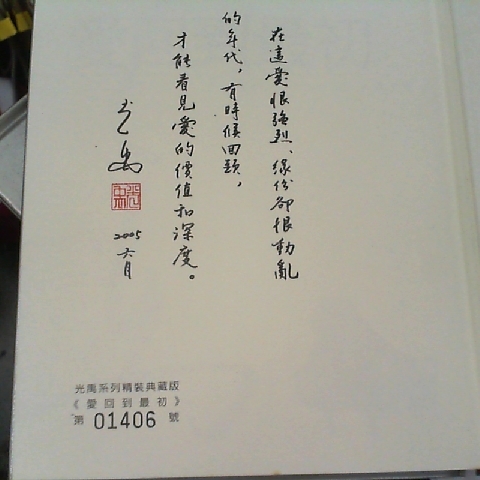 在這愛恨強烈、緣份卻很動亂
的年代，有時候回頭，
才能看見愛的價值和深度。
光禹
2005
六月
光禹系列精裝典藏版
《愛回到最初》
第 01406 號